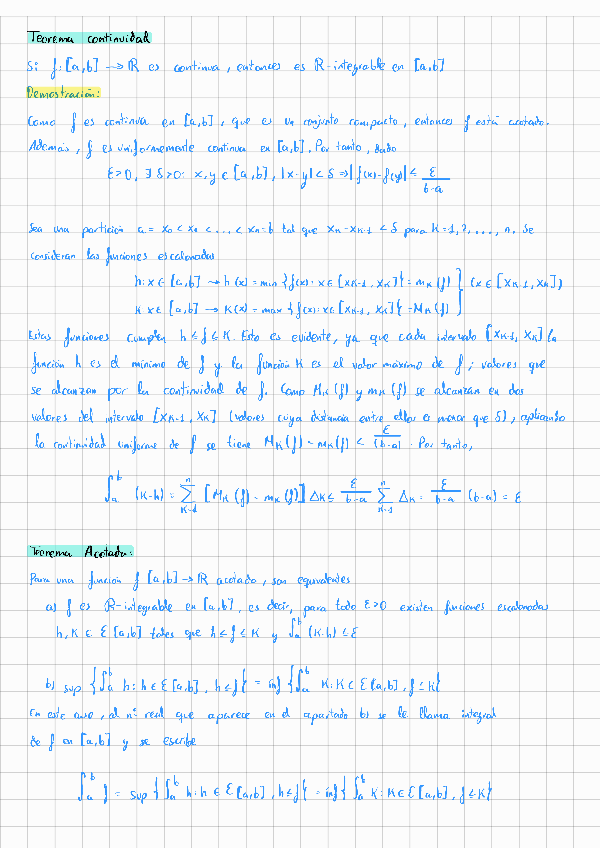 Teorema continuidad
Si f: [a,b] → ℝ es continua, entonces es R-integrable en [a,b]
Demostración:
Como f es continua en [a,b], que es un conjunto compacto, entonces f está acotada.
Además, f es uniformemente continua en [a,b]. Por tanto, dado
ε>0, ∃ δ>0: x,y ∈ [a,b], |x-y| < δ ⇒ |f(x)-f(y)| ≤ ε/(b-a)
Sea una partición a = x₀ < x₁ < ... < xₙ = b tal que xₖ - xₖ₋₁ < δ para k=1,2,..., n. Se
consideran las funciones escalonadas
h: x ∈ [a,b] → h(x) = min {f(x): x ∈ [xₖ₋₁, xₖ]} = mₖ(f) } (x ∈ [xₖ₋₁, xₖ])
K x ∈ [a,b] → K(x) = max {f(x): x ∈ [xₖ₋₁, xₖ]} = Mₖ(f)
Estas funciones cumplen h ≤ f ≤ K. Esto es evidente, ya que cada intervalo [xₖ₋₁, xₖ] la
función h es el mínimo de f y la función K es el valor máximo de f; valores que
se alcanzan por la continuidad de f. Como Mₖ(f) y mₖ(f) se alcanzan en dos
valores del intervalo [xₖ₋₁, xₖ] (valores cuya distancia entre ellos es menor que δ), aplicando
la continuidad uniforme de f se tiene Mₖ(f) - mₖ(f) < ε/(b-a). Por tanto,
∫ₐᵇ (K-h) = Σₖ₌₁ⁿ [Mₖ(f) - mₖ(f)] Δₖ ≤ ε/(b-a) Σₖ₌₁ⁿ Δₖ = ε/(b-a) (b-a) = ε
Teorema Acotada:
Para una función f [a,b] → ℝ acotada, son equivalentes
a) f es R-integrable en [a,b], es decir, para todo ε>0 existen funciones escalonadas
h, K ∈ ℰ[a,b] tales que h ≤ f ≤ K y ∫ₐᵇ (K-h) ≤ ε
b) sup {∫ₐᵇ h: h ∈ ℰ[a,b], h ≤ f} = inf {∫ₐᵇ K: K ∈ ℰ[a,b], f ≤ K}
En este caso, al nº real que aparece en el apartado b) se le llama integral
de f en [a,b] y se escribe
∫ₐᵇ f = sup {∫ₐᵇ h: h ∈ ℰ[a,b], h ≤ f} = inf {∫ₐᵇ K: K ∈ ℰ[a,b], f ≤ K}